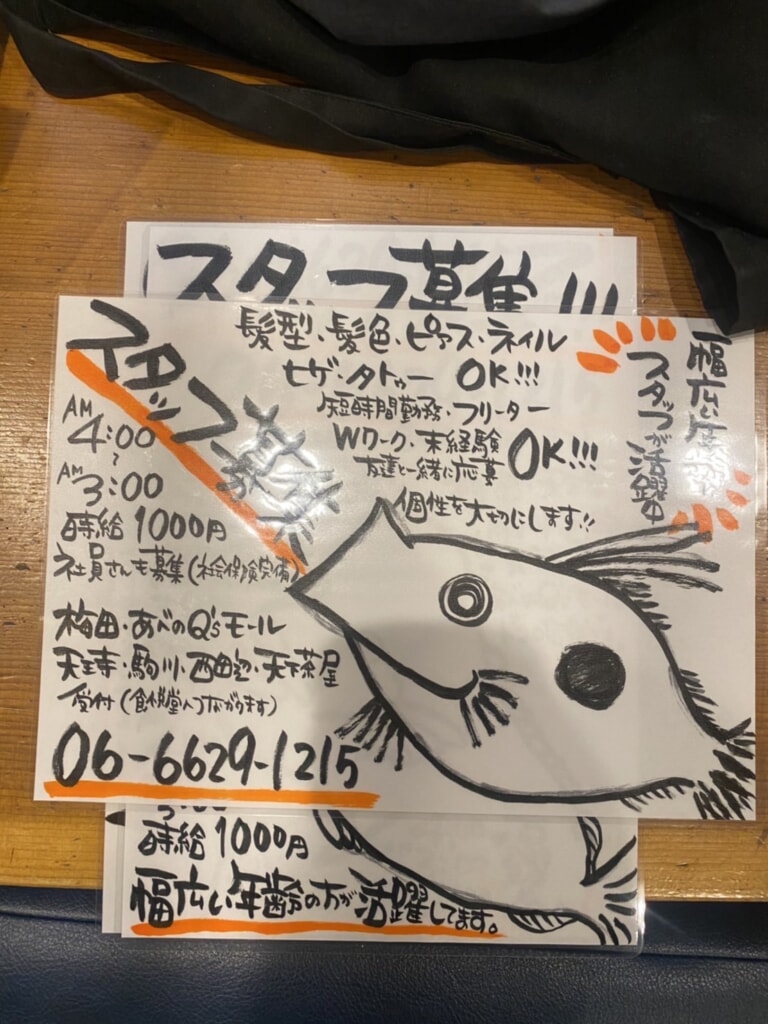 スタッフ募集!!!
スタッフ募集
髪型、髪色、ピアス・ネイル
ヒゲ・タトゥー OK!!!
短時間勤務・フリーター
Wワーク・未経験
友達と一緒に応募
OK!!!
個性を大切にします!!
幅広い年齢
スタッフが活躍中
AM
4:00
~
AM
3:00
時給1000円
社員さんも募集(社会保険完備)
梅田・あべのQ'sモール
天王寺・駒川・西田辺・天下茶屋
受付(食悦堂へつながります)
06-6629-1215
時給1000円
幅広い年齢の方が活躍してます。